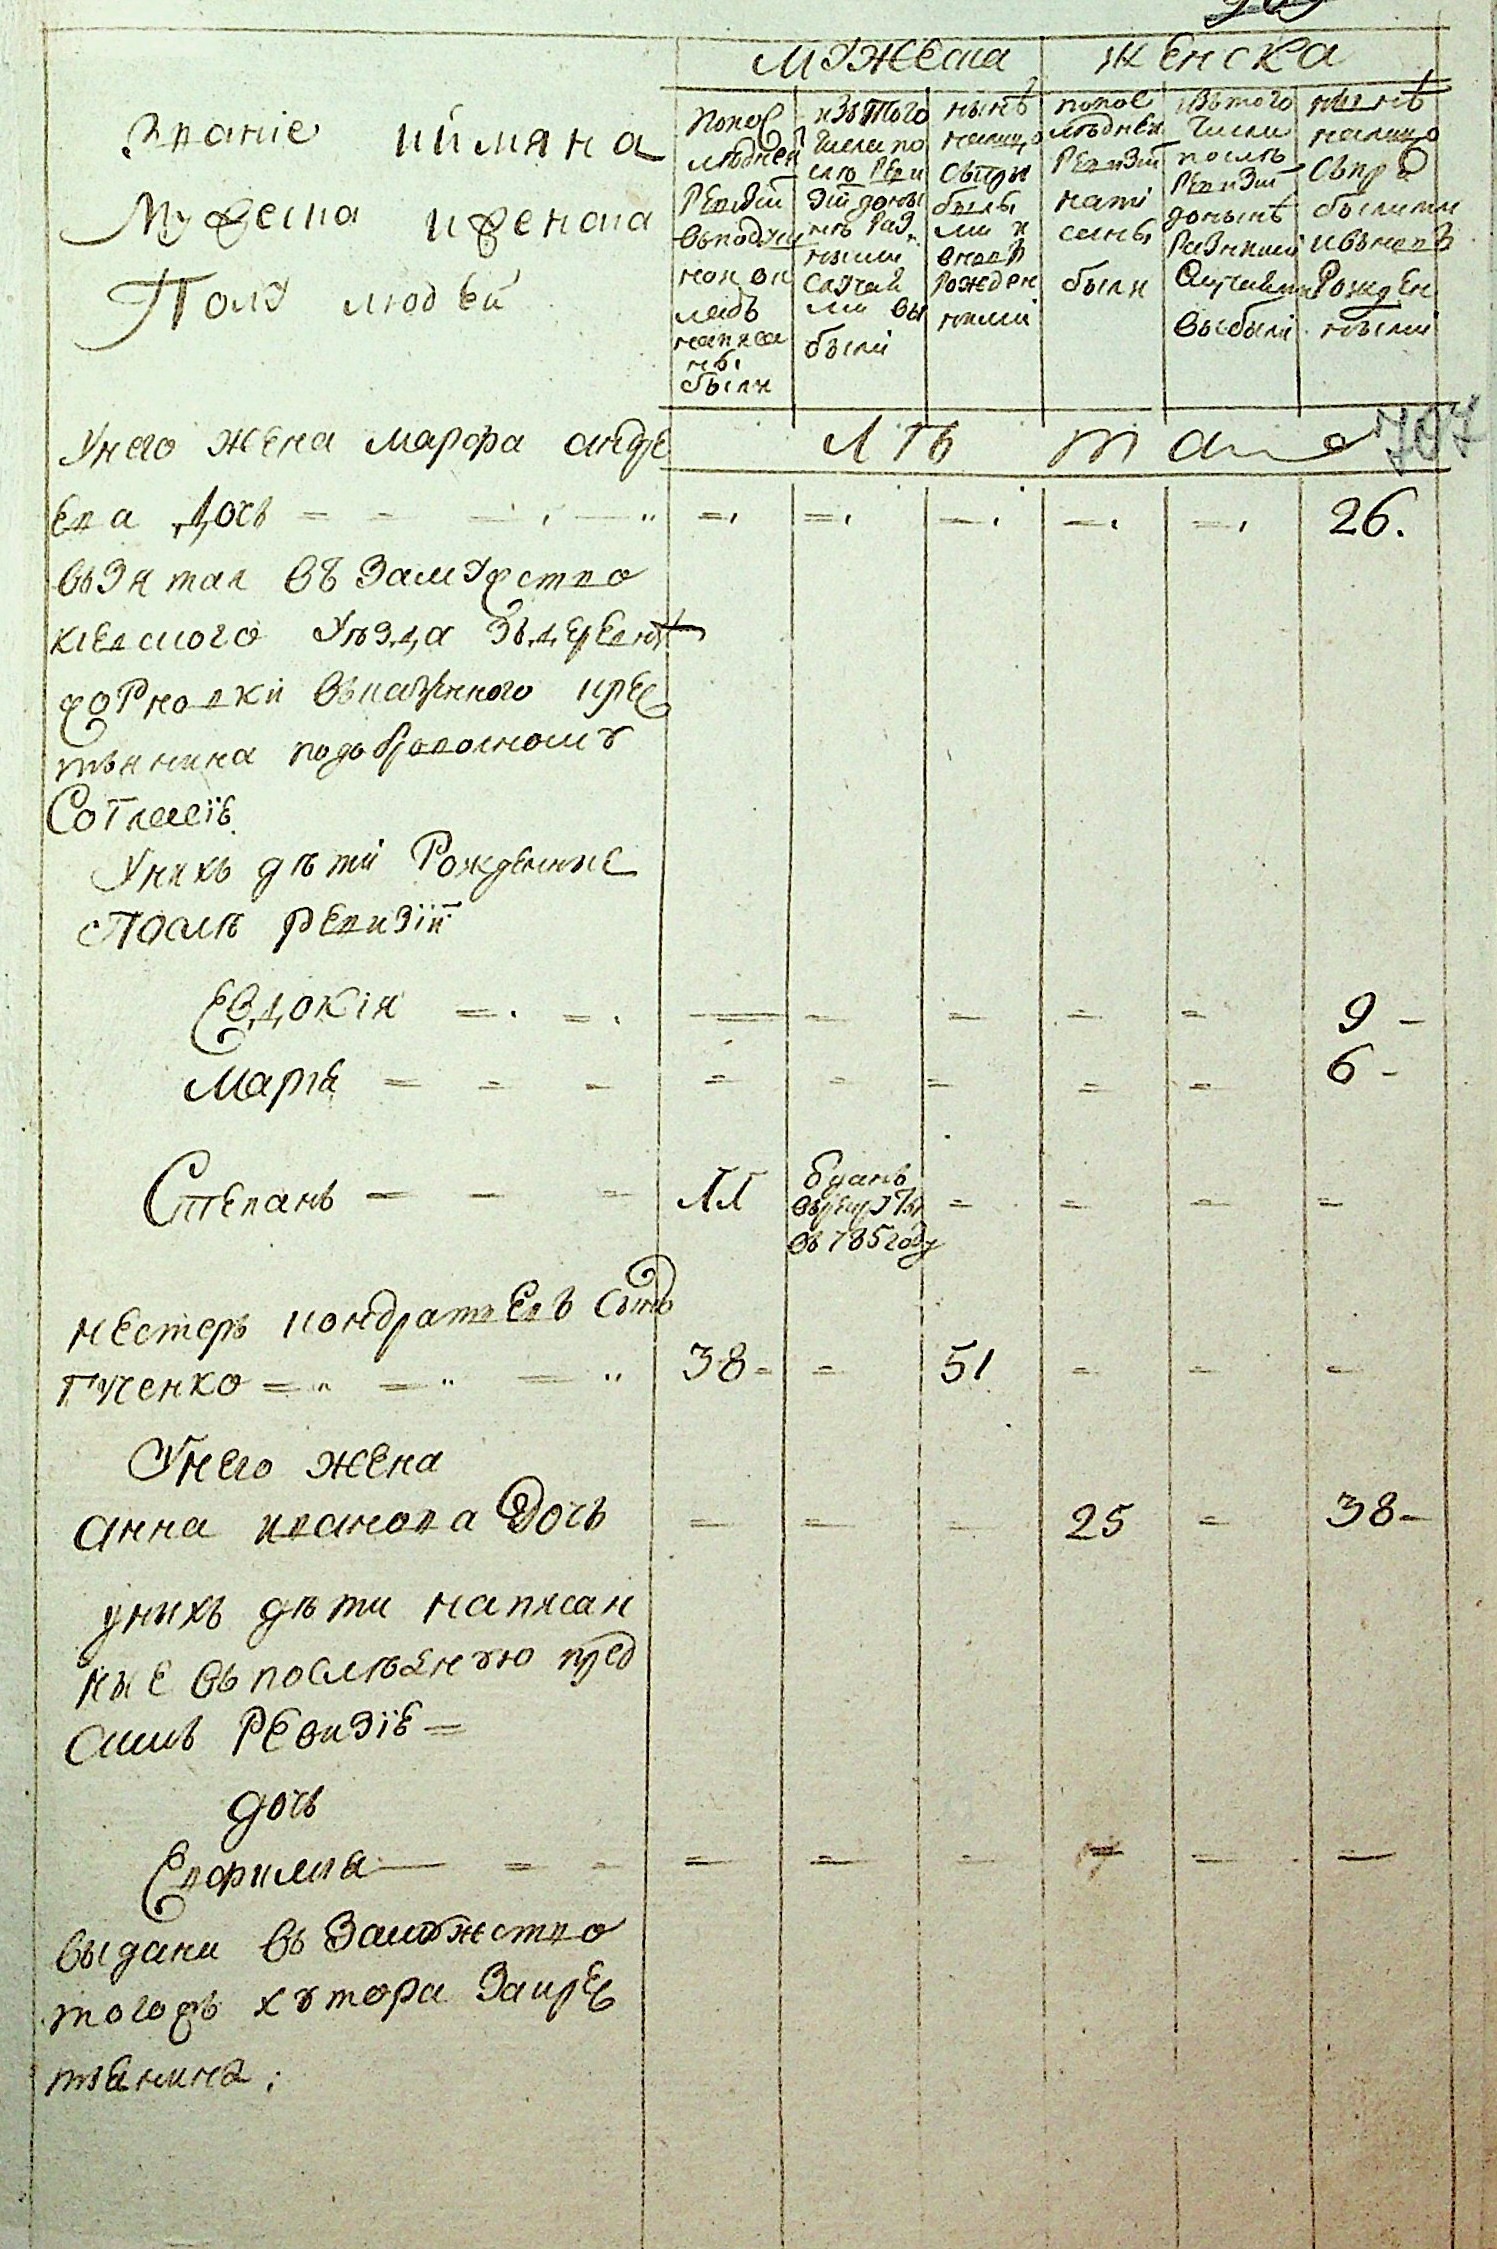 мужеска женска
Звание и имяна
Мужеска и женска
Полу людей
попос
леднеи
ревизіи
въ подуш
ном ок
ладѣ
написа
ны
были
изъ того
числа по
слѣ реви
зіи доны
нѣ раз
ными
случаи
ми вы
были
нынѣ
налицо
съ при
былы
ми и
вновь
рожден
ними
попос
лѣдней
ревизіи
написаны
были
изъ того
числа
послѣ
ревизіи
донынѣ
разными
случаями
выбыли
нынѣ
налицо
съ при
былыми
и вновь
рожден
ными
Лѣта
707
У него жена марфа андре
ева дочь 26.
взятая въ замужство
киевского уѣзда зъ деревни
жорновки казенного крес
тьянина по добровольному
Согласіе
У нихъ дѣти Рожденные
Послѣ ревизіи
Евдокія 9
Марія 6
Степанъ
въ 785 году
Нестеръ кондратьевъ сынъ
Гученко 38 51
У него жена
анна иванова дочь 25 38
у нихъ дѣти написан
ные въ последнюю пред
симъ ревизіе
дочь
Евфимия
выдана въ замужство
того жъ хутора за крес
тянина